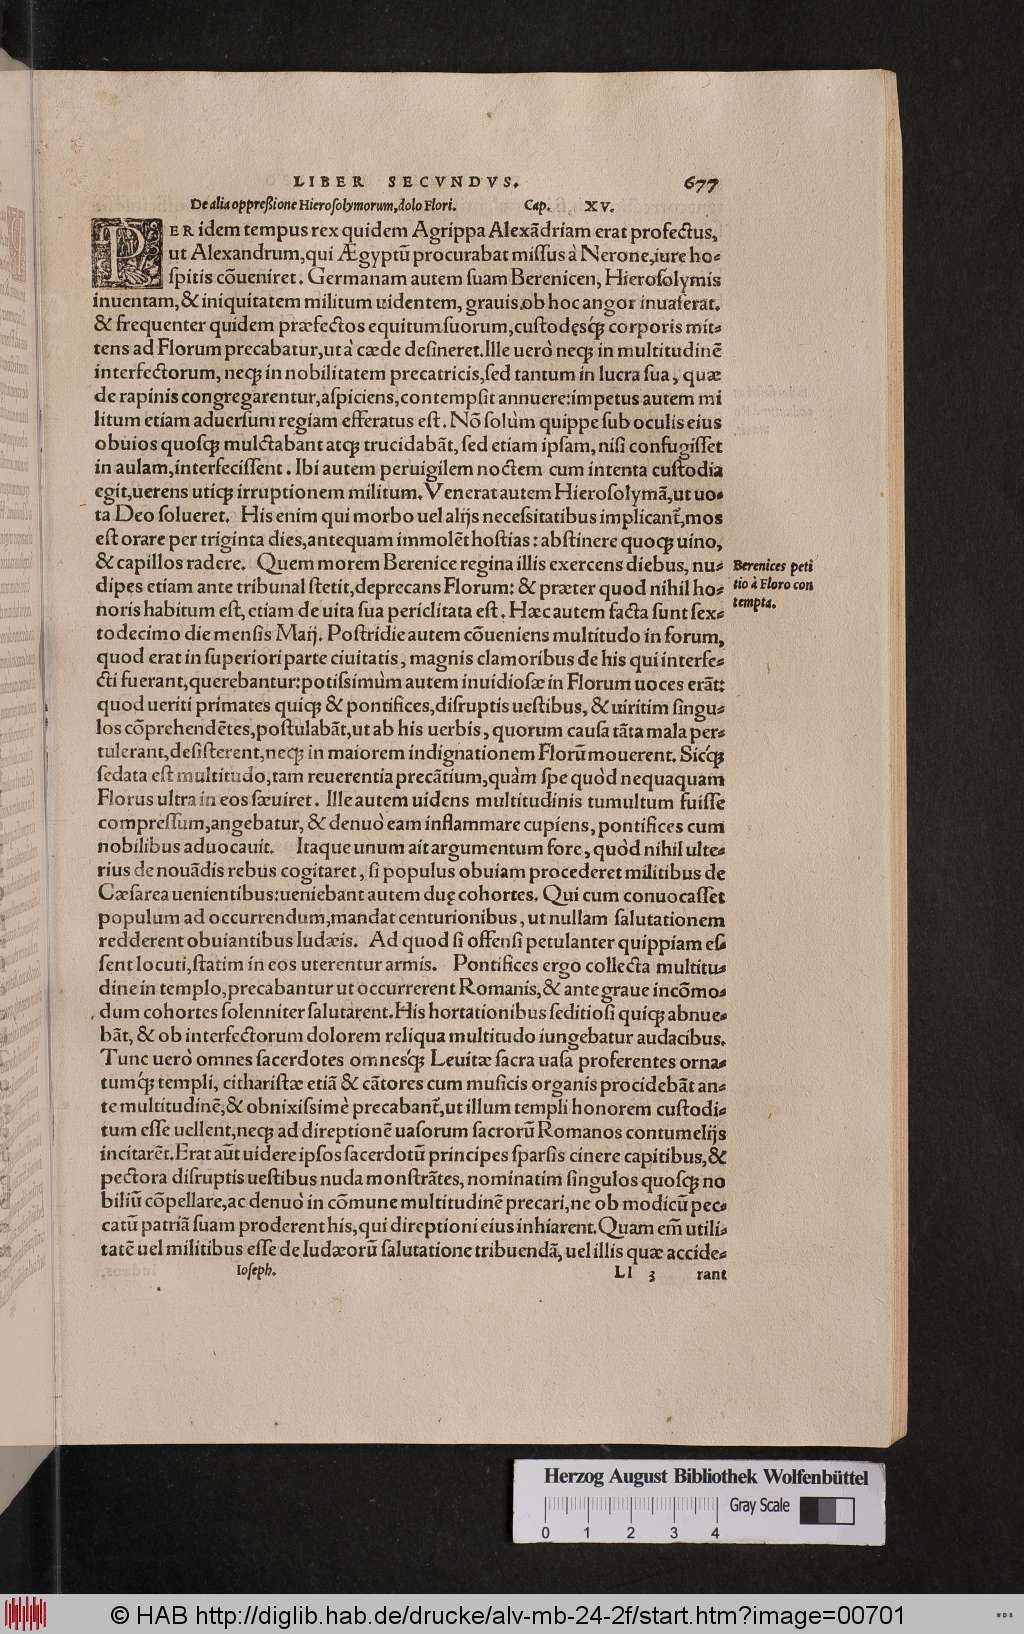 LIBER SECVNDVS. 677
De alia oppreßione Hierosolymorum, dolo Flori. Cap. XV.
PER idem tempus rex quidem Agrippa Alexãdriam erat profectus,
ut Alexandrum, qui Ægyptũ procurabat missus à Nerone, iure ho-
spitis cõueniret. Germanam autem suam Berenicen, Hierosolymis
inuentam, & iniquitatem militum uidentem, grauis ob hoc angor inuaserat.
& frequenter quidem præfectos equitum suorum, custodęsq́ꝫ corporis mit-
tens ad Florum precabatur, ut à cæde desineret. Ille uerò neqꝫ in multitudinẽ
interfectorum, neqꝫ in nobilitatem precatricis, sed tantum in lucra sua, quæ
de rapinis congregarentur, aspiciens, contempsit annuere: impetus autem mi
litum etiam aduersum regiam efferatus est. Nõ solùm quippe sub oculis eius
obuios quosqꝫ mulctabant atqꝫ trucidabãt, sed etiam ipsam, nisi confugisset
in aulam, interfecissent. Ibi autem peruigilem noctem cum intenta custodia
egit, uerens utiqꝫ irruptionem militum. Venerat autem Hierosolymã, ut uo-
ta Deo solueret. His enim qui morbo uel alijs necessitatibus implicant᷑, mos
est orare per triginta dies, antequam immolẽt hostias: abstinere quoqꝫ uino,
& capillos radere. Quem morem Berenice regina illis exercens diebus, nu-
dipes etiam ante tribunal stetit, deprecans Florum: & præter quod nihil ho-
noris habitum est, etiam de uita sua periclitata est. Hæc autem facta sunt sex-
to decimo die mensis Maij. Postridie autem cõueniens multitudo in forum,
quod erat in superiori parte ciuitatis, magnis clamoribus de his qui interfe-
cti fuerant, querebantur: potissimùm autem inuidiosæ in Florum uoces erãt:
quod ueriti primates quiqꝫ & pontifices, disruptis uestibus, & uiritim singu-
los cõprehendẽtes, postulabãt, ut ab his uerbis, quorum causa tãta mala per-
tulerant, desisterent, neqꝫ in maiorem indignationem Florũ mouerent. Sicq́ꝫ
sedata est multitudo, tam reuerentia precãtium, quàm spe quòd nequaquam
Florus ultra in eos sæuiret. Ille autem uidens multitudinis tumultum fuisse
compressum, angebatur, & denuò eam inflammare cupiens, pontifices cum
nobilibus aduocauit. Itaque unum ait argumentum fore, quòd nihil ulte-
rius de nouãdis rebus cogitaret, si populus obuiam procederet militibus de
Cæsarea uenientibus: ueniebant autem duę cohortes. Qui cum conuocasset
populum ad occurrendum, mandat centurionibus, ut nullam salutationem
redderent obuiantibus Iudæis. Ad quod si offensi petulanter quippiam es-
sent locuti, statim in eos uterentur armis. Pontifices ergo collecta multitu-
dine in templo, precabantur ut occurrerent Romanis, & ante graue incõmo-
dum cohortes solenniter salutarent. His hortationibus seditiosi quiqꝫ abnue-
bãt, & ob interfectorum dolorem reliqua multitudo iungebatur audacibus.
Tunc uerò omnes sacerdotes omnesq́ꝫ Leuitæ sacra uasa proferentes orna-
tumq́ꝫ templi, citharistæ etiã & cãtores cum musicis organis procidebãt an-
te multitudinẽ, & obnixissimè precabant᷑, ut illum templi honorem custodi-
tum esse uellent, neqꝫ ad direptionẽ uasorum sacrorũ Romanos contumelijs
incitarẽt. Erat aũt uidere ipsos sacerdotũ principes sparsis cinere capitibus, &
pectora disruptis uestibus nuda monstrãtes, nominatim singulos quosqꝫ no
biliũ cõpellare, ac denuò in cõmune multitudinẽ precari, ne ob modicũ pec-
catũ patriã suam proderent his, qui direptioni eius inhiarent. Quam em̃ utili-
tatẽ uel militibus esse de Iudæorũ salutatione tribuendã, uel illis quæ accide-
Ioseph. Ll 3 rant
Berenices peti
tio à Floro con
tempta.
Herzog August Bibliothek Wolfenbüttel
Gray Scale
0 1 2 3 4
© HAB http://diglib.hab.de/drucke/alv-mb-24-2f/start.htm?image=00701